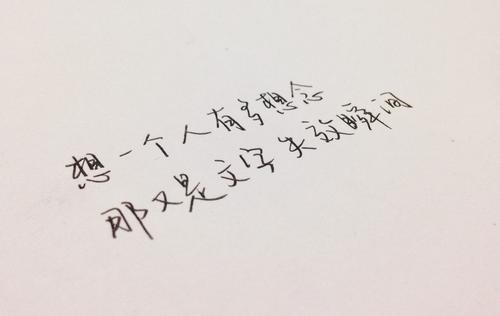 想一个人有多想念
那又是文字失效瞬间